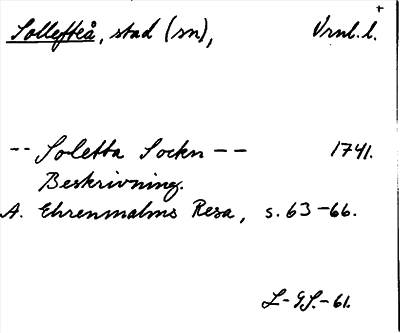 Sollefteå, stad (sn), Vrnl. l. +
-- Soletta Sockn -- 1741.
Beskrivning.
A. Ehrenmalms Resa, s. 63-66.
L-GS.-61.